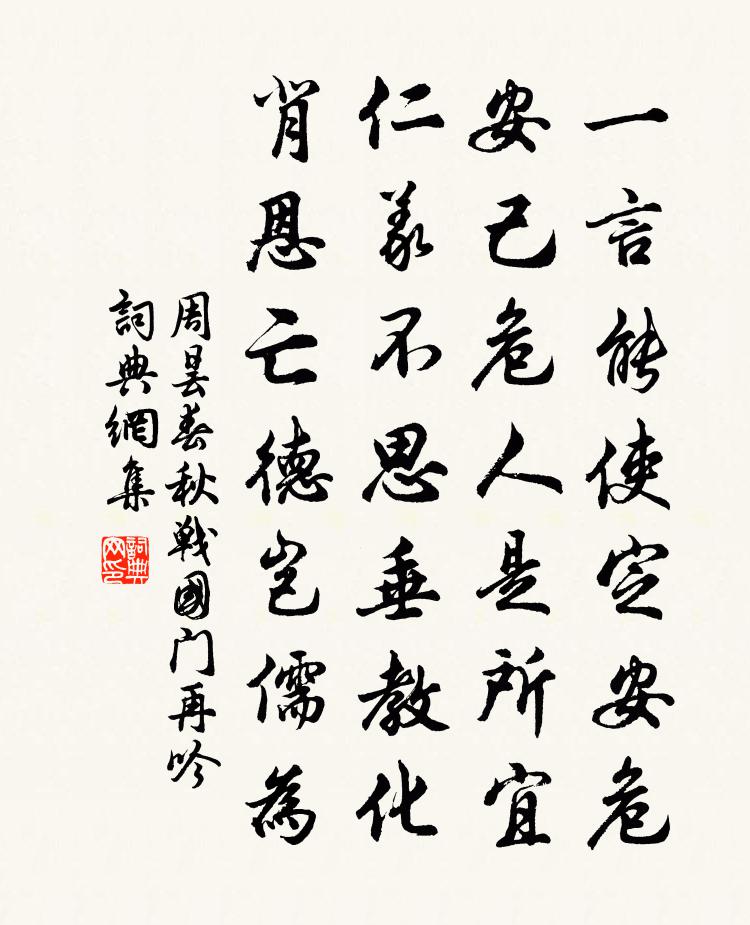 一言能使定安危
安己危人是所宜
仁義不思垂教化
背恩亡德豈儒為
周曇春秋戰國門再吟
詞典網集
詞典网印